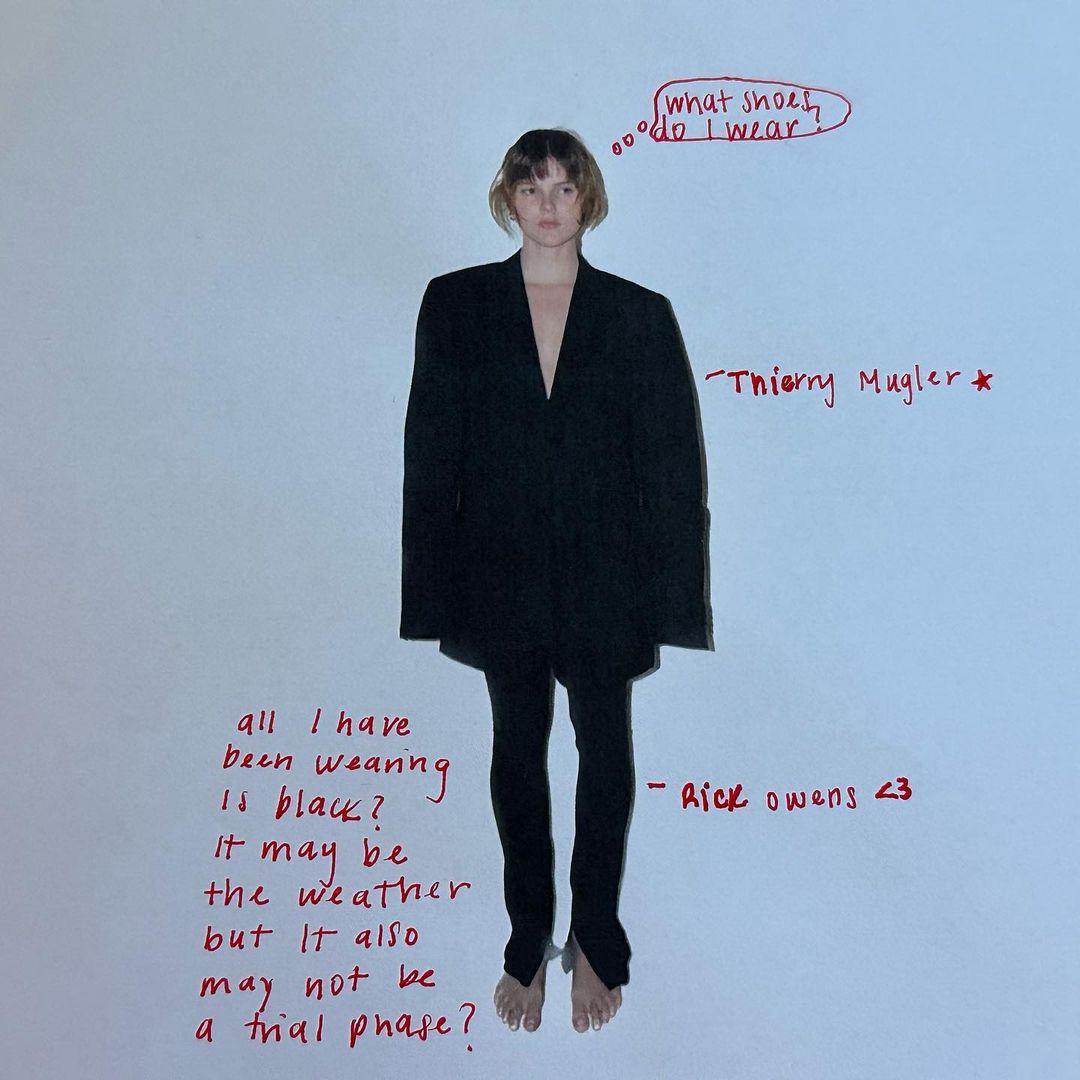 what shoes
do I wear?
- Thierry Mugler ★
all I have
been wearing
is black?
It may be
the weather
but It also
may not be
a trial phase?
- Rick owens <3